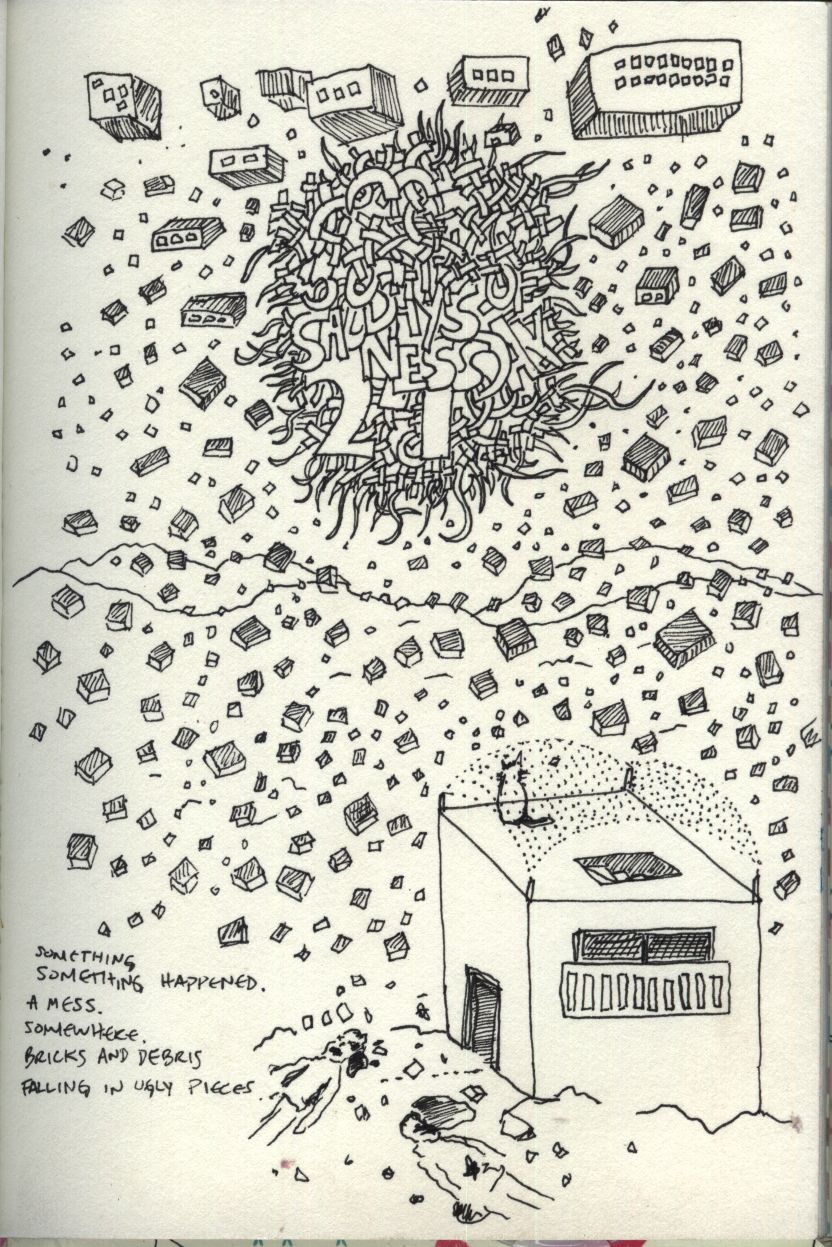 SHOUTYS
NESS
21
SOMETHING
SOMETHING HAPPENED.
A MESS.
SOMEWHERE.
BRICKS AND DEBRIS
FALLING IN UGLY PIECES.